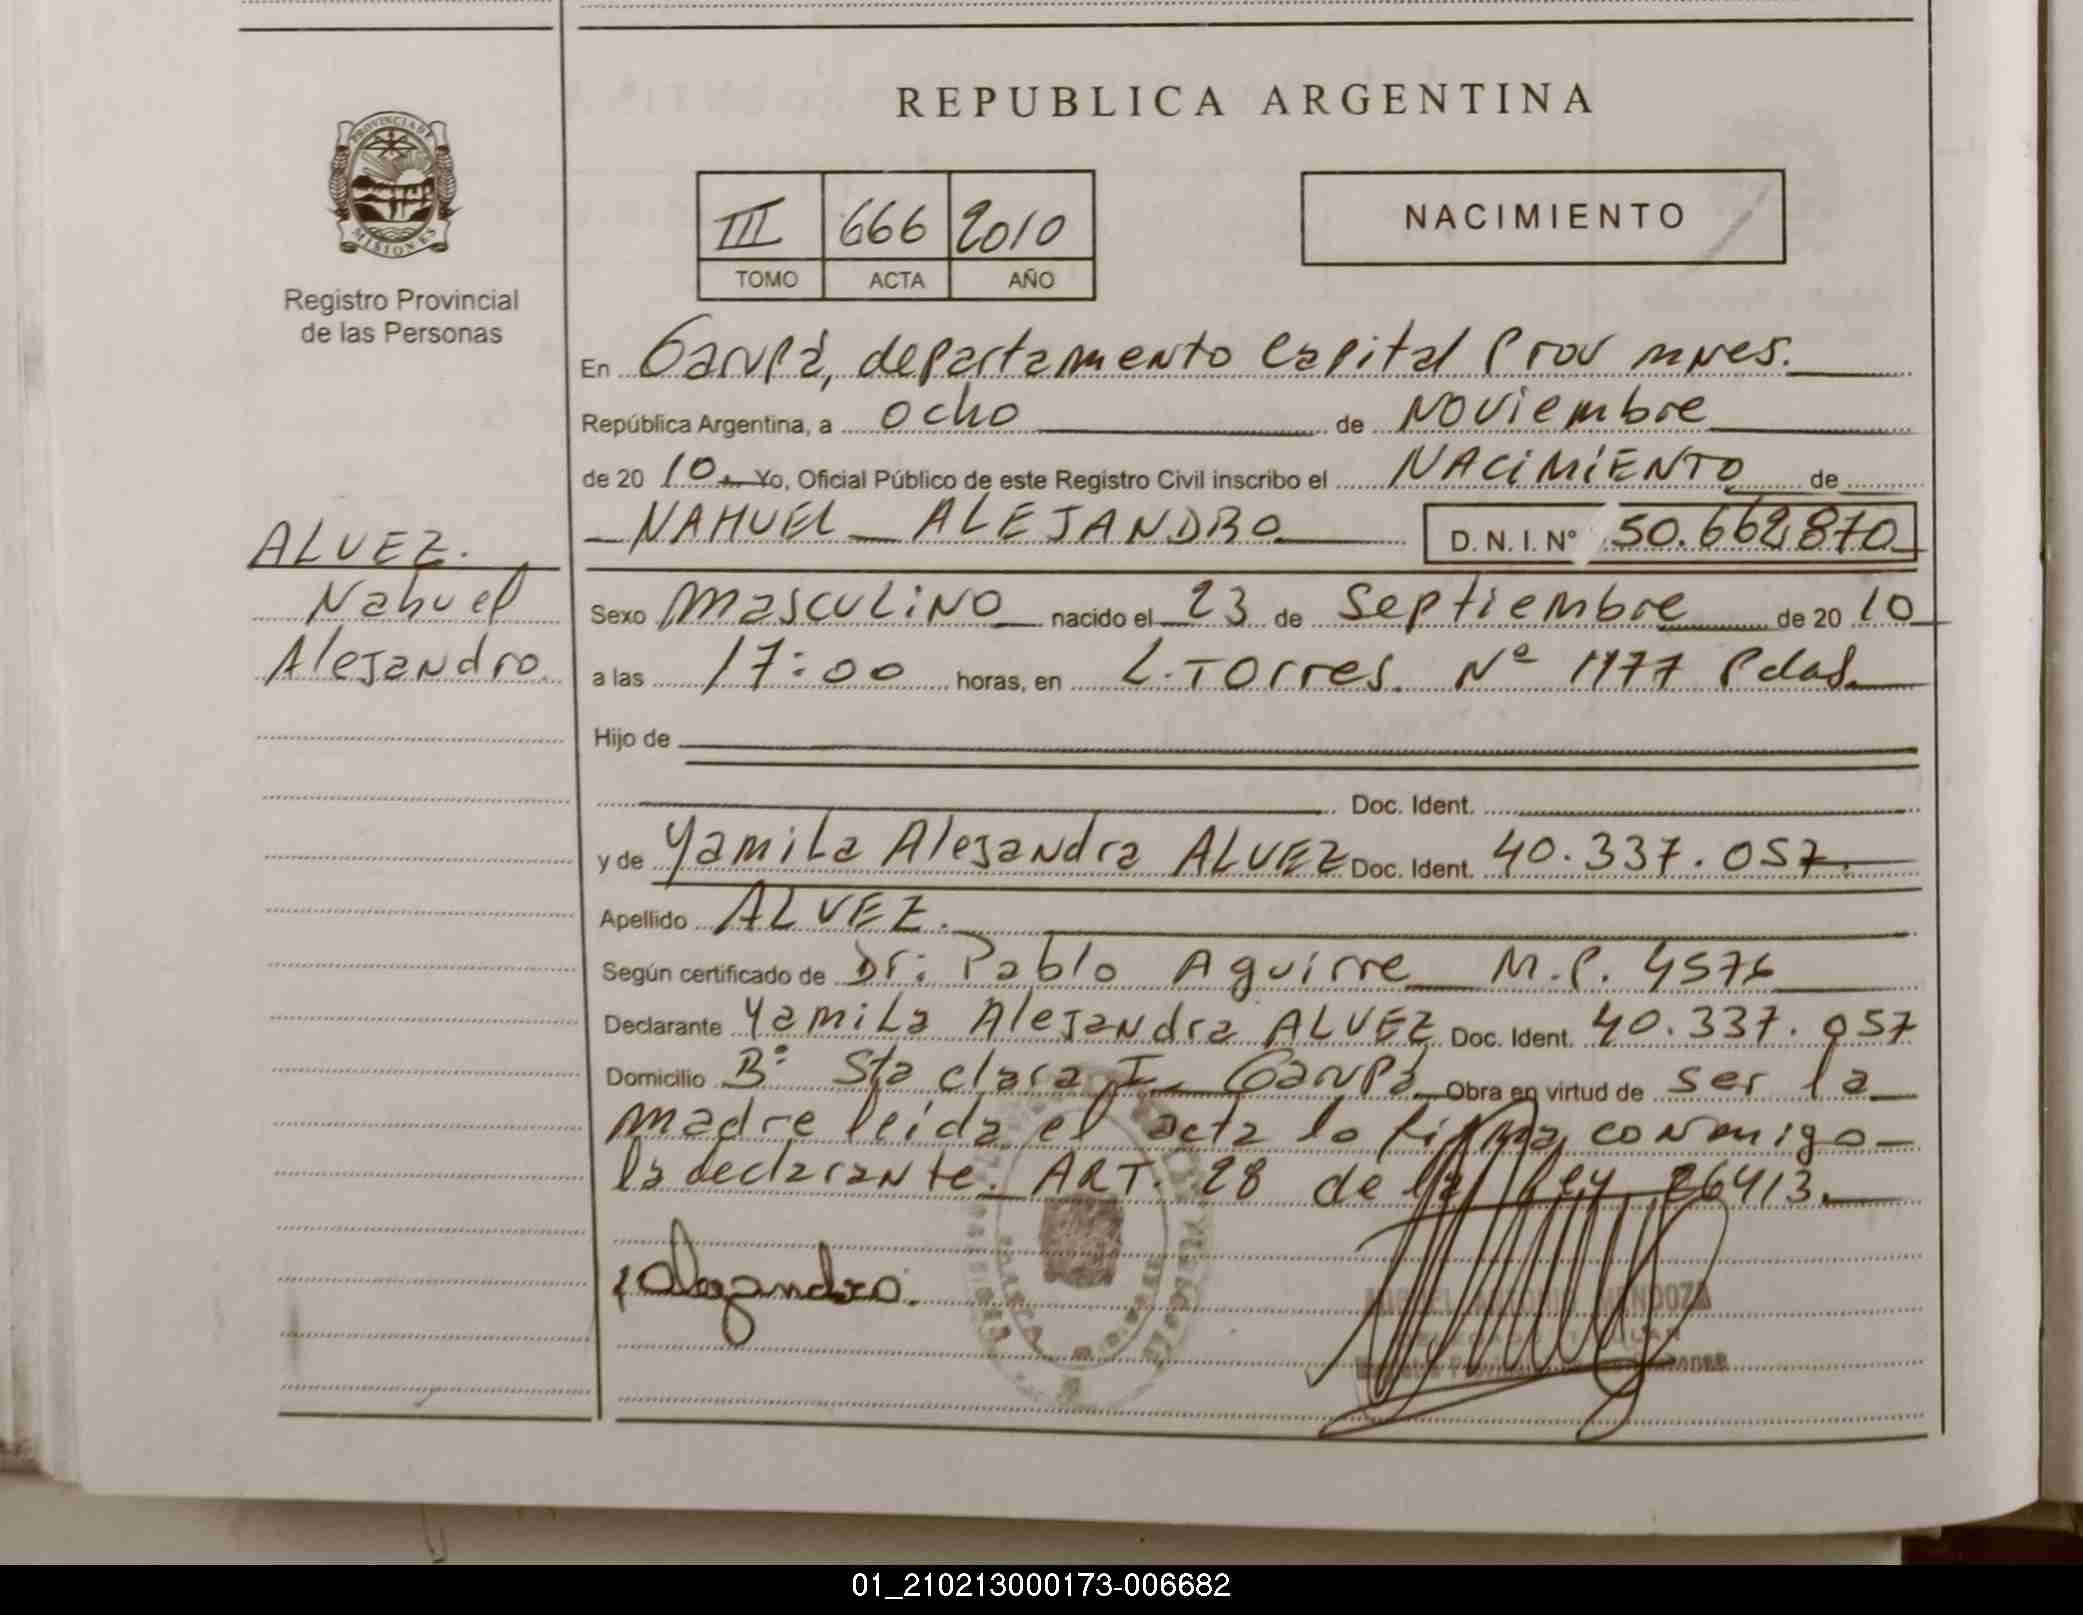 REPUBLICA ARGENTINA
PROVINCIA DE MISIONES
Registro Provincial
de las Personas
III 666 2010
TOMO ACTA AÑO
NACIMIENTO
En Garupá, departamento Capital Prov mnes.
República Argentina, a ocho de Noviembre
de 20 10. Yo, Oficial Público de este Registro Civil inscribo el NACIMIENTO de
NAHUEL ALEJANDRO D. N. I. Nº 50.662.870
ALVEZ.
Nahuel
Alejandro
Sexo masculino nacido el 23 de Septiembre de 20 10
a las 17:00 horas, en L. Torres. Nº 1977 Pdas.
Hijo de
Doc. Ident.
y de Yamila Alejandra ALVEZ Doc. Ident. 40.337.057.
Apellido ALVEZ.
Según certificado de Dr: Pablo Aguirre M.P. 4576
Declarante Yamila Alejandra ALVEZ Doc. Ident. 40.337.057
Domicilio Bº Sta clara I. Garupá Obra en virtud de ser la
madre leida el acta lo firma conmigo
la declarante. ART. 28 de la Ley 26413.
Alejandra.
MENDOZA
01_210213000173-006682